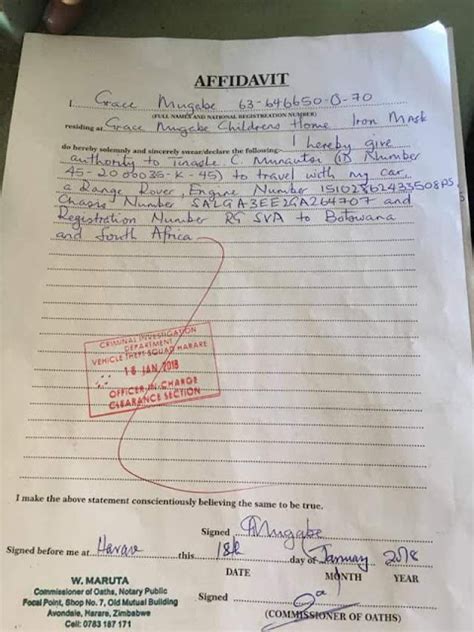 AFFIDAVIT
I, Grace Mugabe 63-646650-Q-70
(FULL NAMES AND NATIONAL REGISTRATION NUMBER)
residing at Grace Mugabe Childrens Home Iron Mask
do hereby solemnly and sincerely swear/declare the following:- I hereby give
authority to Tinashe. C. Munautsi (ID Number
45-2000035-K-45) to travel with my car
a Range Rover Engine Number 15102862433508PS
Chassis Number SALGA3EE2GA264707 and
Registration Number RG SVA to Botswana
and South Africa
CRIMINAL INVESTIGATION
DEPARTMENT
VEHICLE THEFT SQUAD HARARE
18 JAN 2018
OFFICER-IN-CHARGE
CLEARANCE SECTION
I make the above statement conscientiously believing the same to be true.
Signed GMugabe
Signed before me at Harare this 18th day of January 2018
DATE MONTH YEAR
W. MARUTA
Commissioner of Oaths, Notary Public
Focal Point, Shop No. 7, Old Mutual Building
Avondale, Harare, Zimbabwe
Cell: 0783 187 171
Signed
(COMMISSIONER OF OATHS)